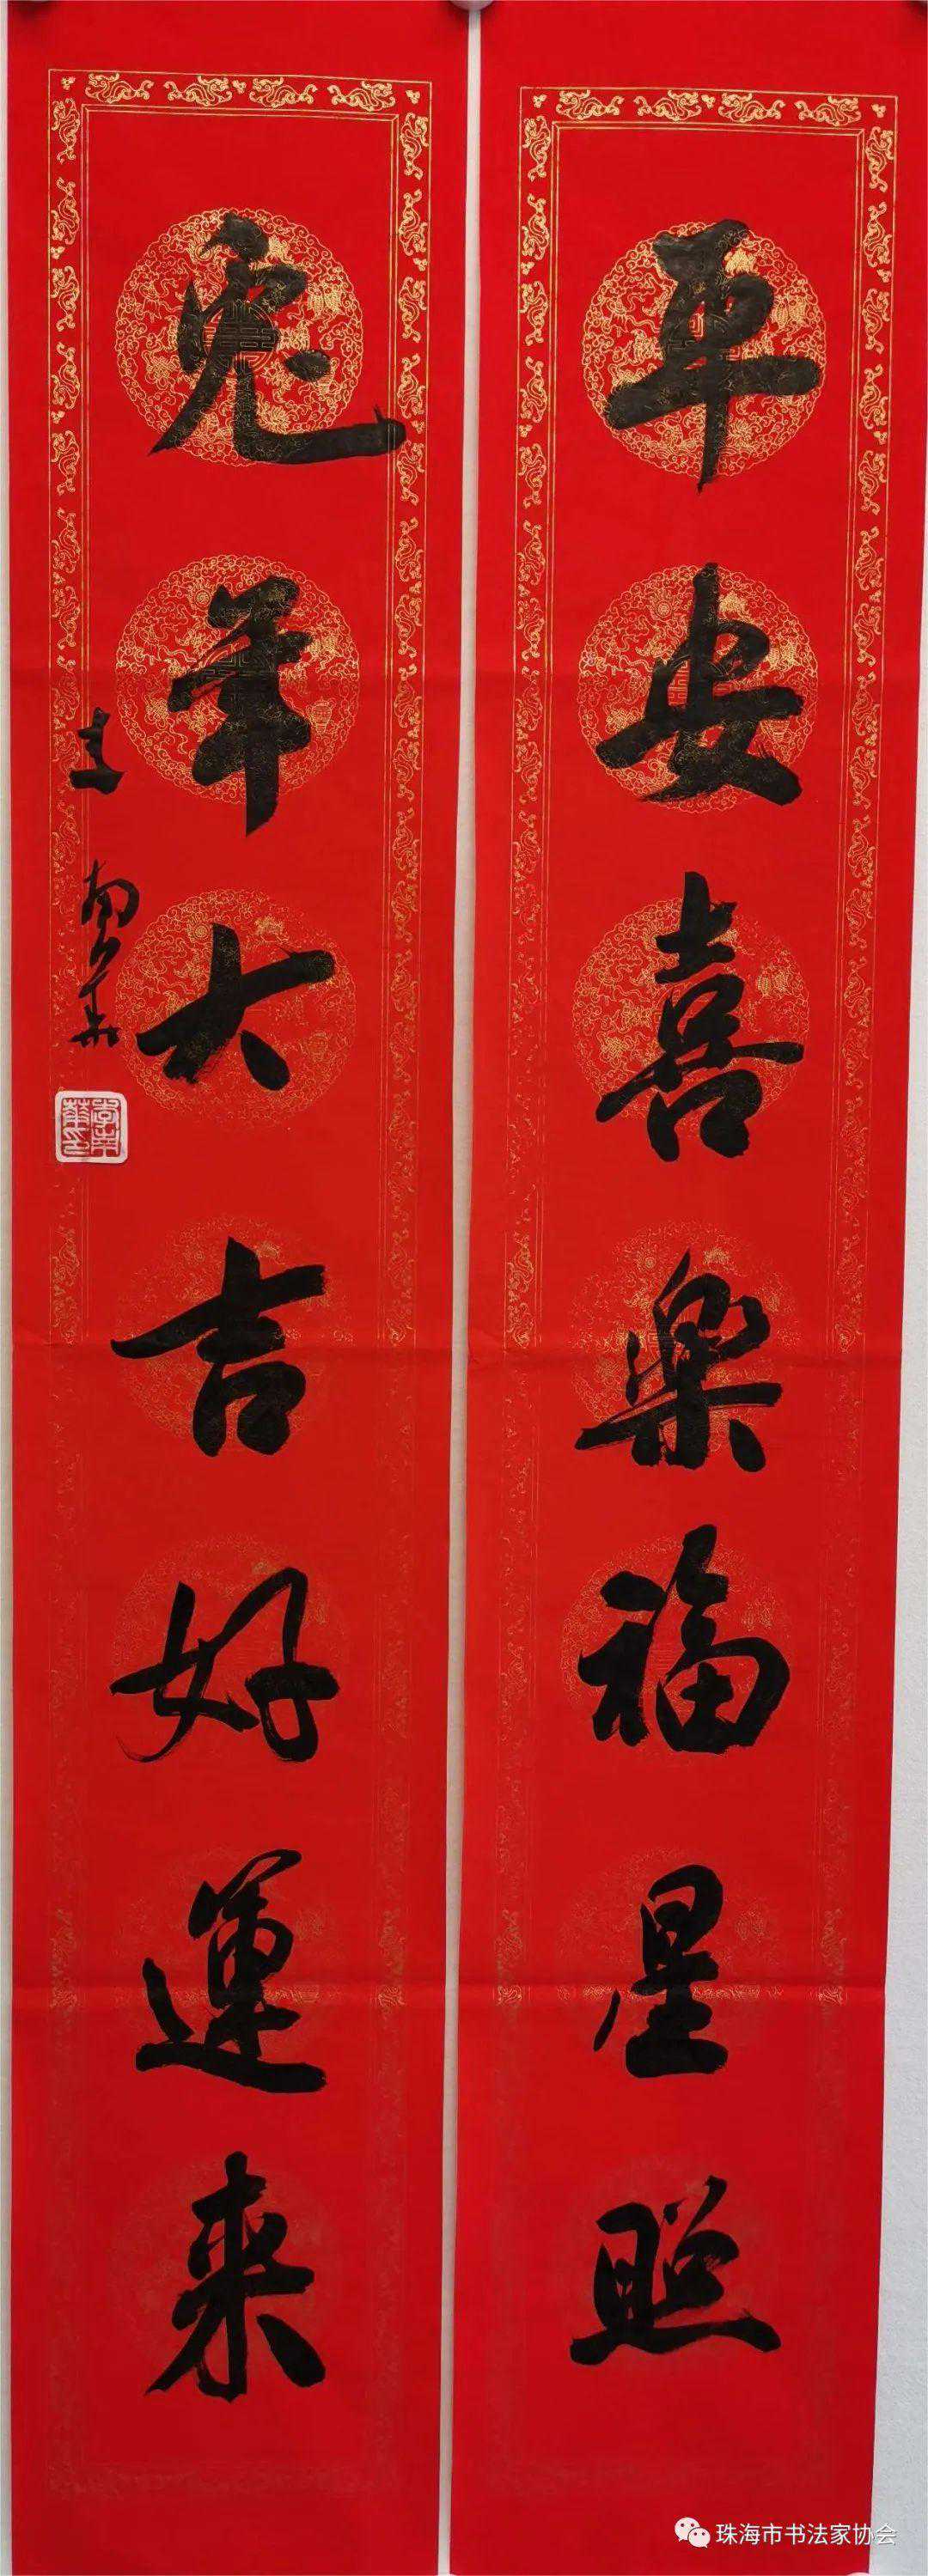 平安喜樂福星照
兔年大吉好運来
珠海市书法家协会